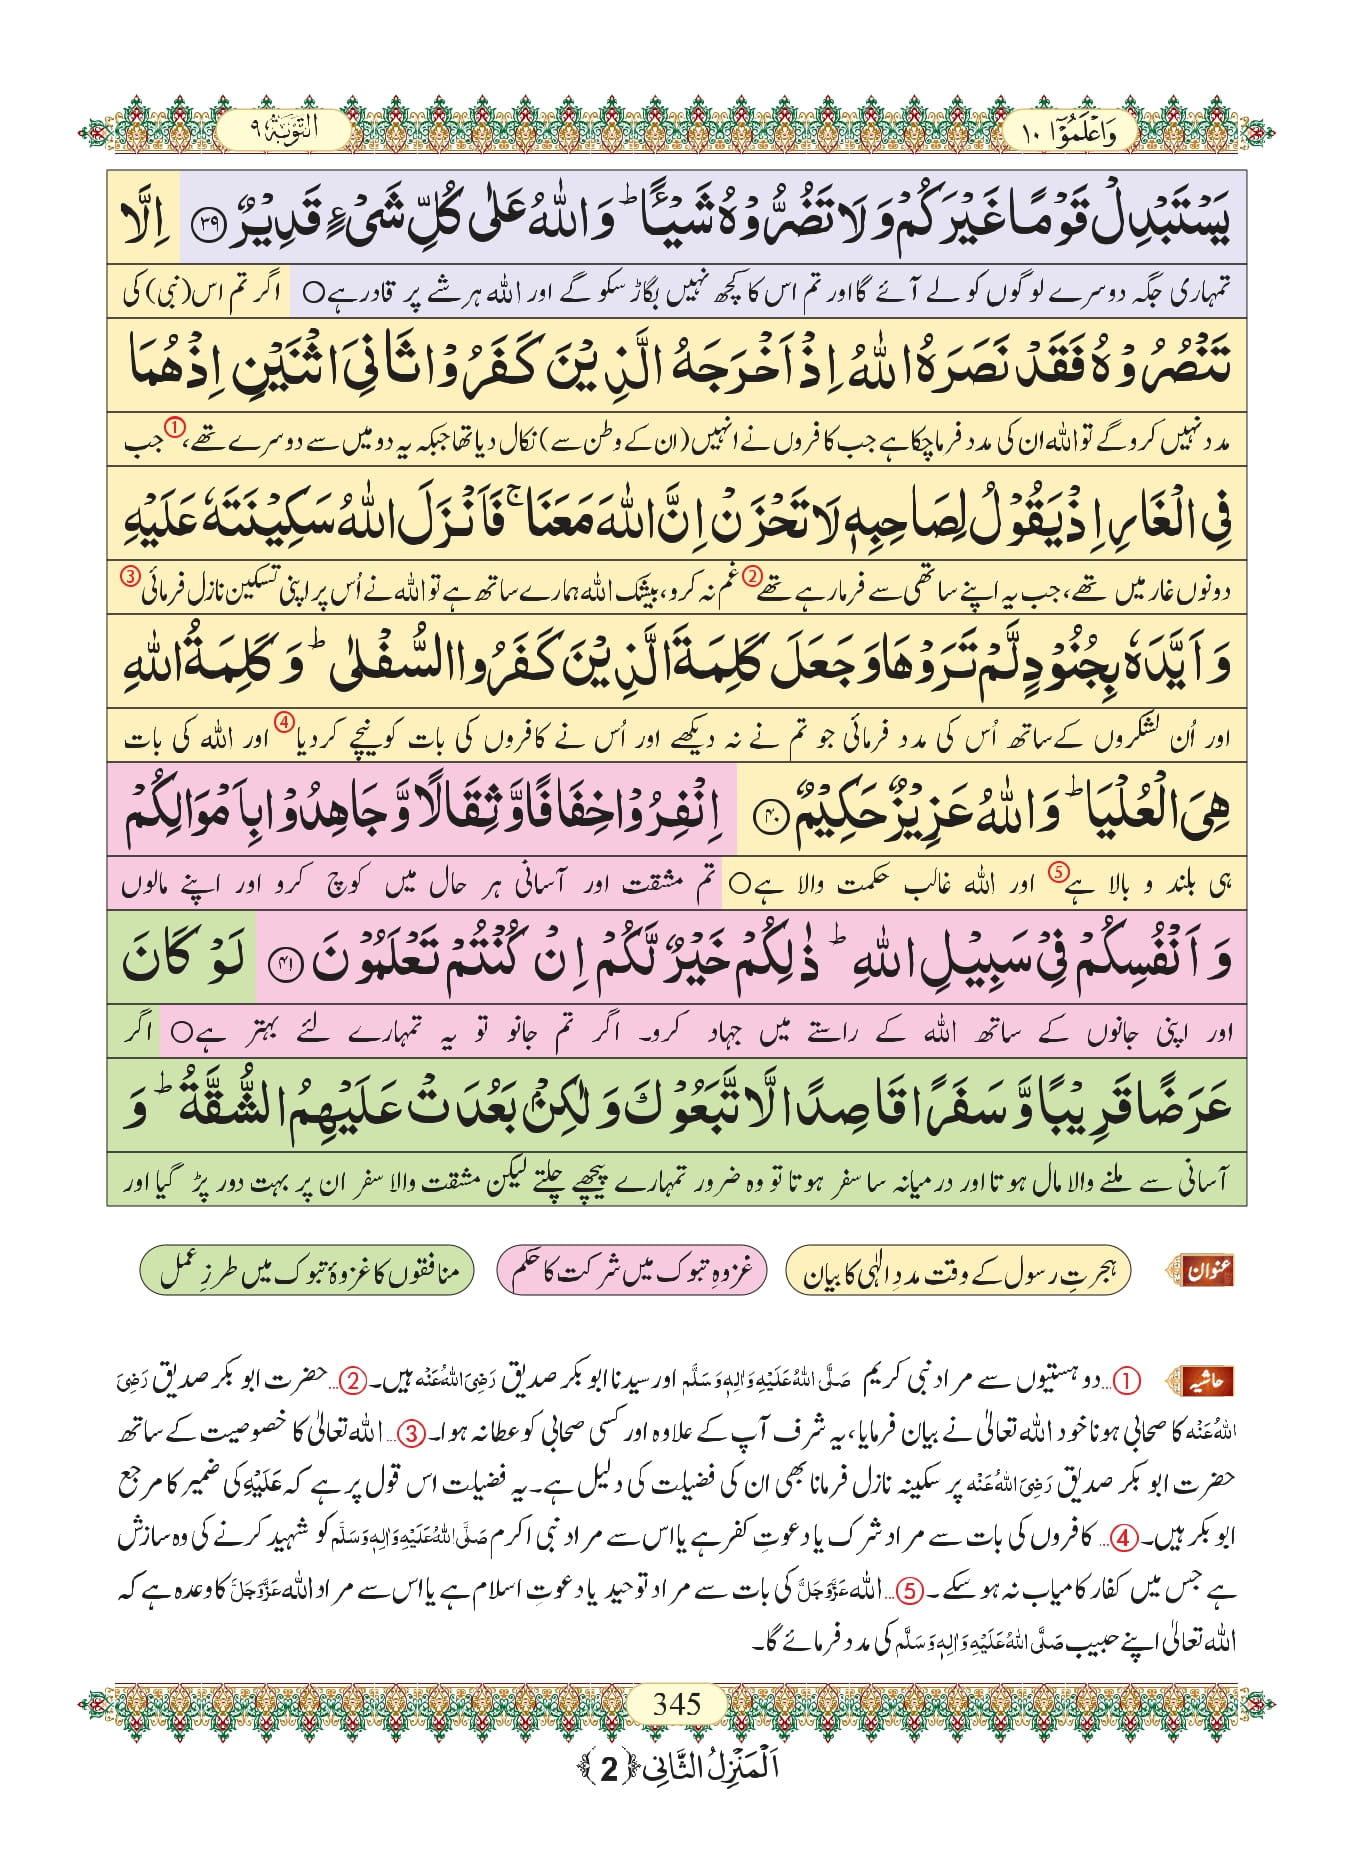 وَاعْلَمُوْۤا ۱۰
التَّوْبَۃ ۹
یَسْتَبْدِلْ قَوْمًا غَیْرَكُمْ وَ لَا تَضُرُّوْهُ شَیْــٴًـاؕ وَ اللّٰهُ عَلٰى كُلِّ شَیْءٍ قَدِیْرٌ ﴿۳۹﴾ اِلَّا
تمہاری جگہ دوسرے لوگوں کو لے آئے گا اور تم اس کا کچھ نہیں بگاڑ سکو گے اور اللہ ہر شے پر قادر ہے○ اگر تم اس (نبی) کی
تَنْصُرُوْهُ فَقَدْ نَصَرَهُ اللّٰهُ اِذْ اَخْرَجَهُ الَّذِیْنَ كَفَرُوْا ثَانِیَ اثْنَیْنِ اِذْ هُمَا
مدد نہیں کرو گے تو اللہ ان کی مدد فرما چکا ہے جب کافروں نے انہیں (ان کے وطن سے) نکال دیا تھا جبکہ یہ دو میں سے دوسرے تھے،① جب
فِی الْغَارِ اِذْ یَقُوْلُ لِصَاحِبِهٖ لَا تَحْزَنْ اِنَّ اللّٰهَ مَعَنَاۚ فَاَنْزَلَ اللّٰهُ سَكِیْنَتَهٗ عَلَیْهِ
دونوں غار میں تھے، جب یہ اپنے ساتھی سے فرما رہے تھے② غم نہ کرو، بیشک اللہ ہمارے ساتھ ہے تو اللہ نے اُس پر اپنی تسکین نازل فرمائی③
وَ اَیَّدَهٗ بِجُنُوْدٍ لَّمْ تَرَوْهَا وَ جَعَلَ كَلِمَةَ الَّذِیْنَ كَفَرُوا السُّفْلٰىؕ وَ كَلِمَةُ اللّٰهِ
اور اُن لشکروں کے ساتھ اُس کی مدد فرمائی جو تم نے نہ دیکھے اور اُس نے کافروں کی بات کو نیچے کر دیا④ اور اللہ کی بات
هِیَ الْعُلْیَاؕ وَ اللّٰهُ عَزِیْزٌ حَكِیْمٌ ﴿۴۰﴾ اِنْفِرُوْا خِفَافًا وَّ ثِقَالًا وَّ جَاهِدُوْا بِاَمْوَالِكُمْ
ہی بلند و بالا ہے⑤ اور اللہ غالب حکمت والا ہے○ تم مشقت اور آسانی ہر حال میں کوچ کرو اور اپنے مالوں
وَ اَنْفُسِكُمْ فِیْ سَبِیْلِ اللّٰهِؕ ذٰلِكُمْ خَیْرٌ لَّكُمْ اِنْ كُنْتُمْ تَعْلَمُوْنَ ﴿۴۱﴾ لَوْ كَانَ
اور اپنی جانوں کے ساتھ اللہ کے راستے میں جہاد کرو۔ اگر تم جانو تو یہ تمہارے لئے بہتر ہے○ اگر
عَرَضًا قَرِیْبًا وَّ سَفَرًا قَاصِدًا لَّا تَّبَعُوْكَ وَ لٰكِنْۢ بَعُدَتْ عَلَیْهِمُ الشُّقَّةُؕ وَ
آسانی سے ملنے والا مال ہوتا اور درمیانہ سا سفر ہوتا تو وہ ضرور تمہارے پیچھے چلتے لیکن مشقت والا سفر ان پر بہت دور پڑ گیا اور
عنوان ہجرتِ رسول کے وقت مددِ الٰہی کا بیان غزوہِ تبوک میں شرکت کا حکم منافقوں کا غزوۂ تبوک میں طرزِ عمل
حاشیہ ①...دو ہستیوں سے مراد نبی کریم صَلَّی اللہُ عَلَیْہِ وَاٰلِہٖ وَسَلَّم اور سیدنا ابو بکر صدیق رَضِیَ اللہُ عَنْہ ہیں۔ ②...حضرت ابو بکر صدیق رَضِیَ
اللہُ عَنْہ کا صحابی ہونا خود اللہ تعالیٰ نے بیان فرمایا، یہ شرف آپ کے علاوہ اور کسی صحابی کو عطا نہ ہوا۔ ③... اللہ تعالیٰ کا خصوصیت کے ساتھ
حضرت ابو بکر صدیق رَضِیَ اللہُ عَنْہ پر سکینہ نازل فرمانا بھی ان کی فضیلت کی دلیل ہے۔ یہ فضیلت اس قول پر ہے کہ عَلَیْهِ کی ضمیر کا مرجع
ابو بکر ہیں۔ ④... کافروں کی بات سے مراد شرک یا دعوتِ کفر ہے یا اس سے مراد نبی اکرم صَلَّی اللہُ عَلَیْہِ وَاٰلِہٖ وَسَلَّم کو شہید کرنے کی وہ سازش
ہے جس میں کفار کامیاب نہ ہو سکے۔ ⑤... اللہ عَزَّوَجَلَّ کی بات سے مراد توحید یا دعوتِ اسلام ہے یا اس سے مراد اللہ عَزَّوَجَلَّ کا وعدہ ہے کہ
اللہ تعالیٰ اپنے حبیب صَلَّی اللہُ عَلَیْہِ وَاٰلِہٖ وَسَلَّم کی مدد فرمائے گا۔
345
اَلْمَنْزِلُ الثَّانِی ﴿2﴾